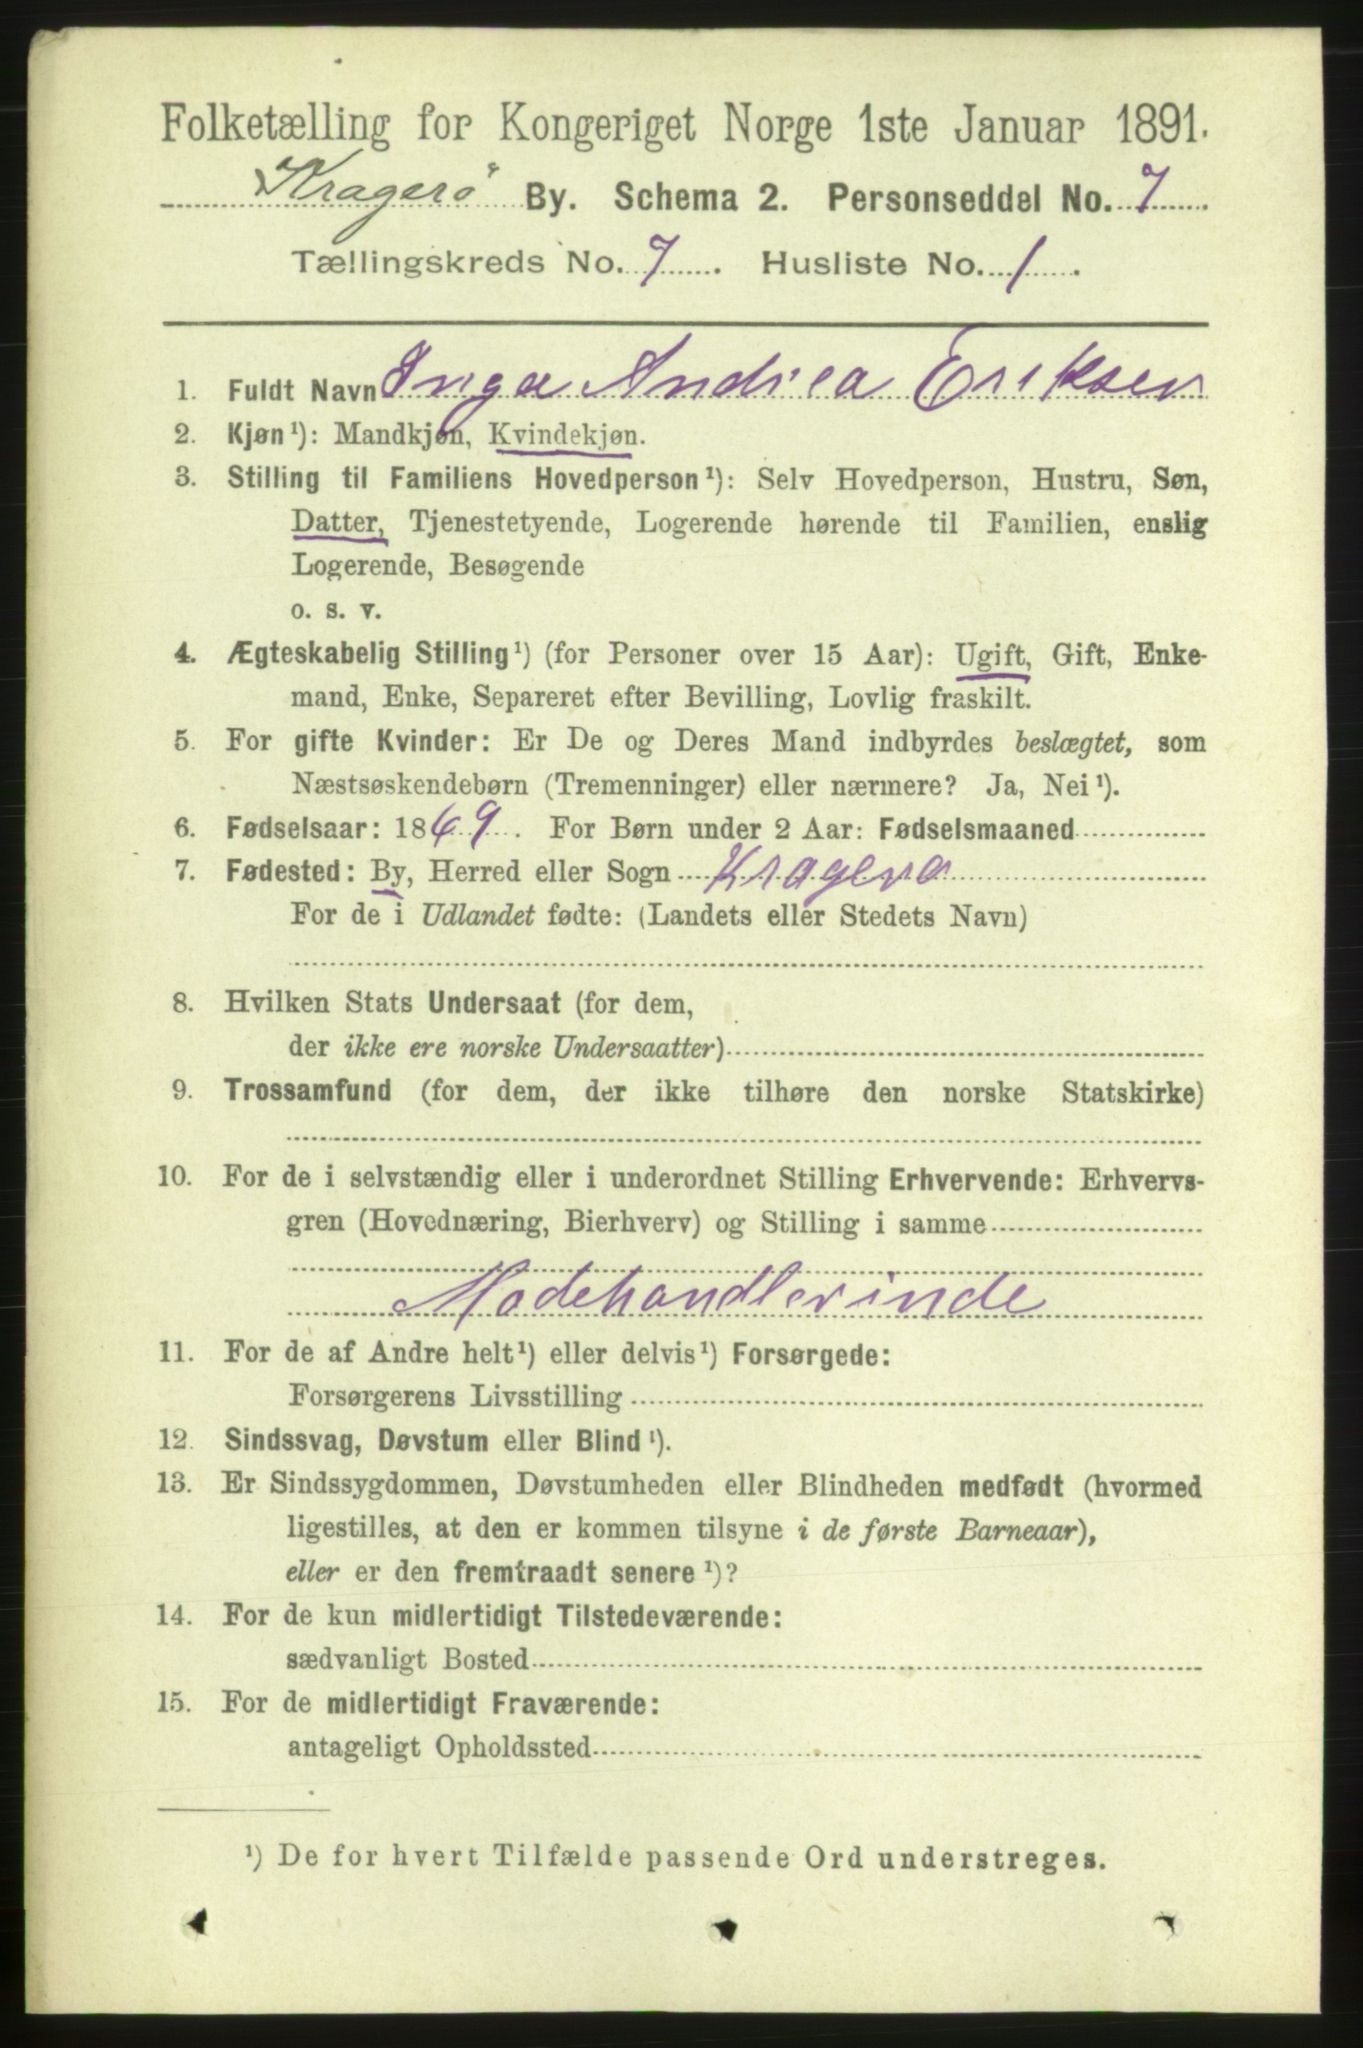 Folketælling for Kongeriget Norge 1ste Januar 1891.
Kragerö By. Schema 2. Personseddel No. 7
Tællingskreds No. 7. Husliste No. 1.
1. Fuldt Navn Inga Andrea Eriksen
2. Kjøn¹): Mandkjøn, Kvindekjøn.
3. Stilling til Familiens Hovedperson¹): Selv Hovedperson, Hustru, Søn,
Datter, Tjenestetyende, Logerende hørende til Familien, enslig
Logerende, Besøgende
o. s. v.
4. Ægteskabelig Stilling¹) (for Personer over 15 Aar): Ugift, Gift, Enke-
mand, Enke, Separeret efter Bevilling, Lovlig fraskilt.
5. For gifte Kvinder: Er De og Deres Mand indbyrdes beslægtet, som
Næstsøskendebørn (Tremenninger) eller nærmere? Ja, Nei¹).
6. Fødselsaar: 1869. For Børn under 2 Aar: Fødselsmaaned
7. Fødested: By, Herred eller Sogn Kragerø
For de i Udlandet fødte: (Landets eller Stedets Navn)
8. Hvilken Stats Undersaat (for dem,
der ikke ere norske Undersaatter)
9. Trossamfund (for dem, der ikke tilhøre den norske Statskirke)
10. For de i selvstændig eller i underordnet Stilling Erhvervende: Erhvervs-
gren (Hovednæring, Bierhverv) og Stilling i samme
Modehandlerinde
11. For de af Andre helt¹) eller delvis¹) Forsørgede:
Forsørgerens Livsstilling
12. Sindssvag, Døvstum eller Blind¹).
13. Er Sindssygdommen, Døvstumheden eller Blindheden medfødt (hvormed
ligestilles, at den er kommen tilsyne i de første Barneaar),
eller er den fremtraadt senere¹)?
14. For de kun midlertidigt Tilstedeværende:
sædvanligt Bosted
15. For de midlertidigt Fraværende:
antageligt Opholdssted
¹) De for hvert Tilfælde passende Ord understreges.